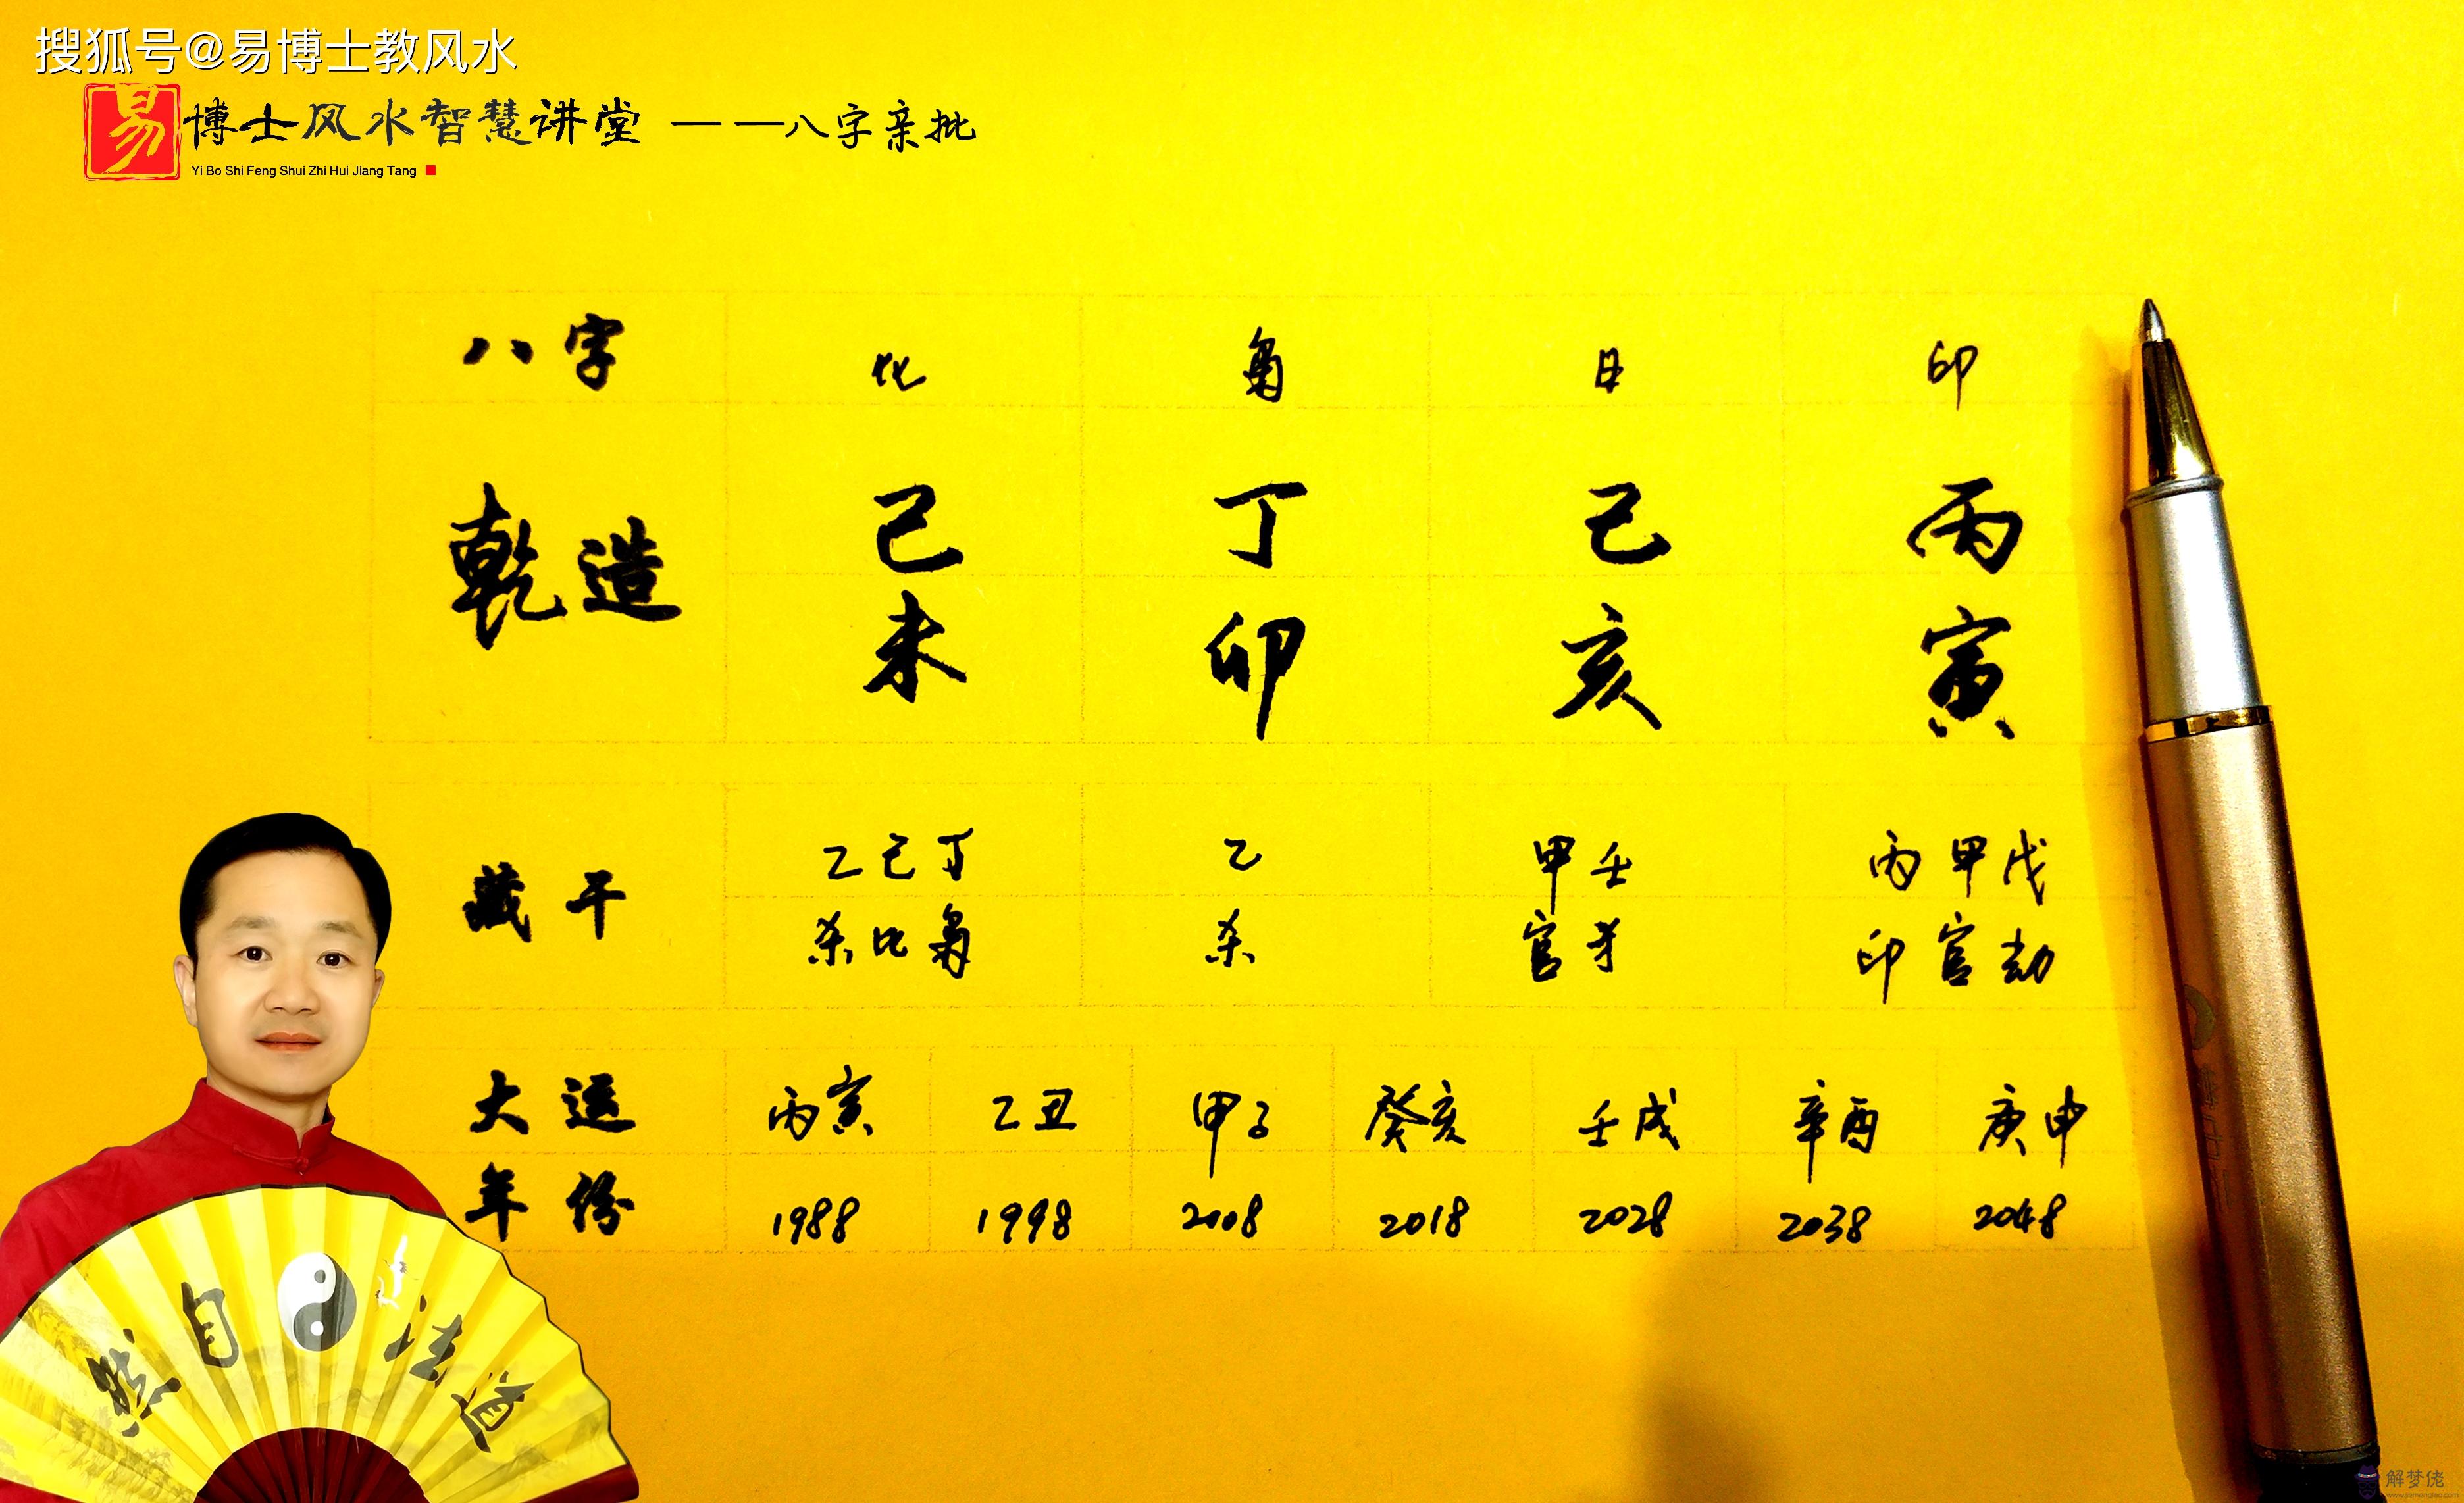 搜狐号@易博士教风水
易博士风水智慧讲堂 ——八字亲批
Yi Bo Shi Feng Shui Zhi Hui Jiang Tang
八字 比 枭 日 印
乾造 己 丁 己 丙
未 卯 亥 寅
藏干 乙己丁 乙 甲壬 丙甲戊
杀比枭 杀 官才 印官劫
大运 丙寅 乙丑 甲子 癸亥 壬戌 辛酉 庚申
年份 1988 1998 2008 2018 2028 2038 2048
然自法道
解梦佬